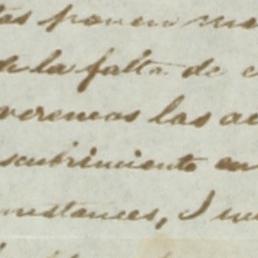 tas ponen me
de la falta de c
veremos las ac
scubrimiento en
unstances, I w